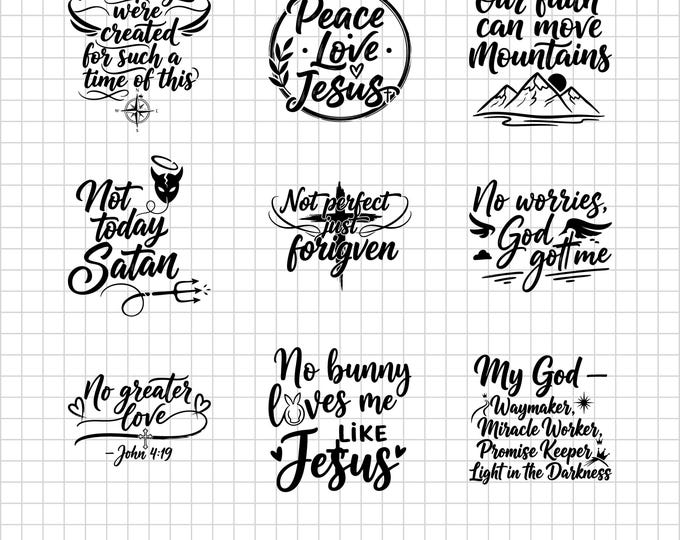 were
created
for such a
time of this
W E
Peace
Love
Jesus
Our faith
can move
Mountains
Not
today
Satan
Not perfect
just
forigven
No worries,
God
gott me
No greater
love
– John 4:19
No bunny
loves me
LIKE
Jesus
My God —
Waymaker,
Miracle Worker,
Promise Keeper
Light in the Darkness